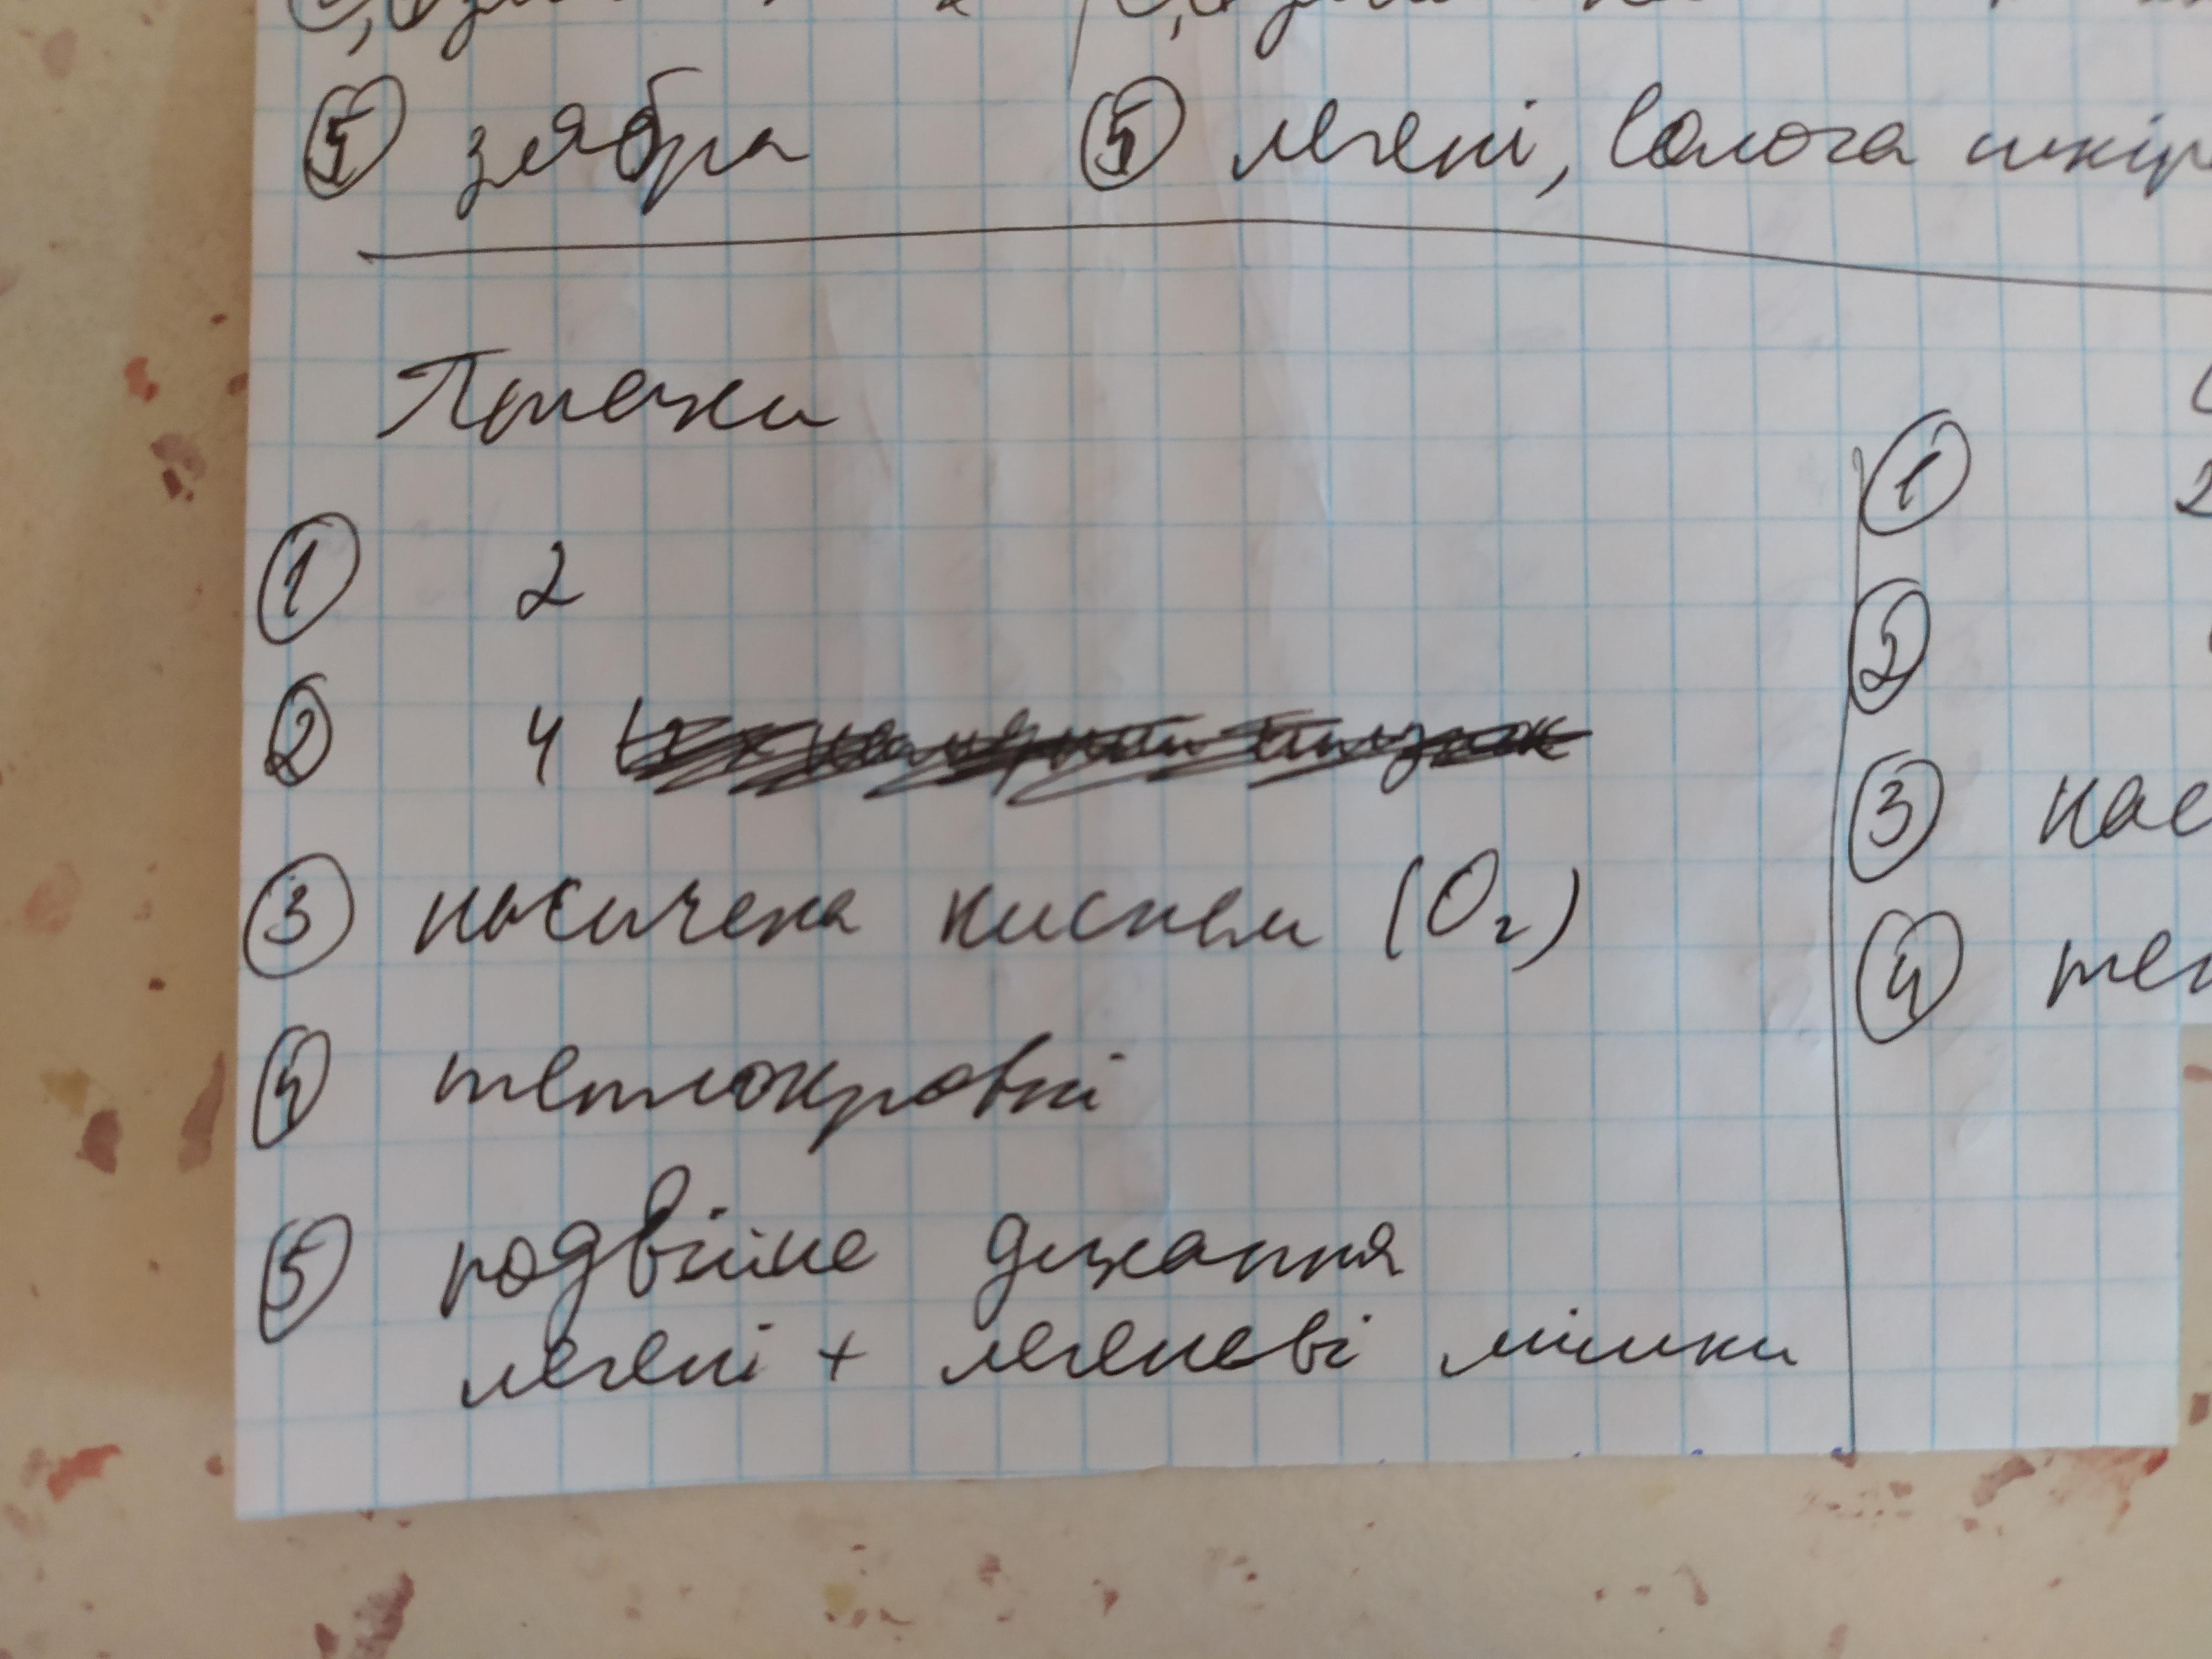 ⑤ зябра ⑤ легені, волога шкір
Птахи
① 2 ① 2
② 4 ②
③ насичена киснем (O₂) ③ нас
④ теплокровні ④ теп
⑤ подвійне дихання
легені + легеневі мішки